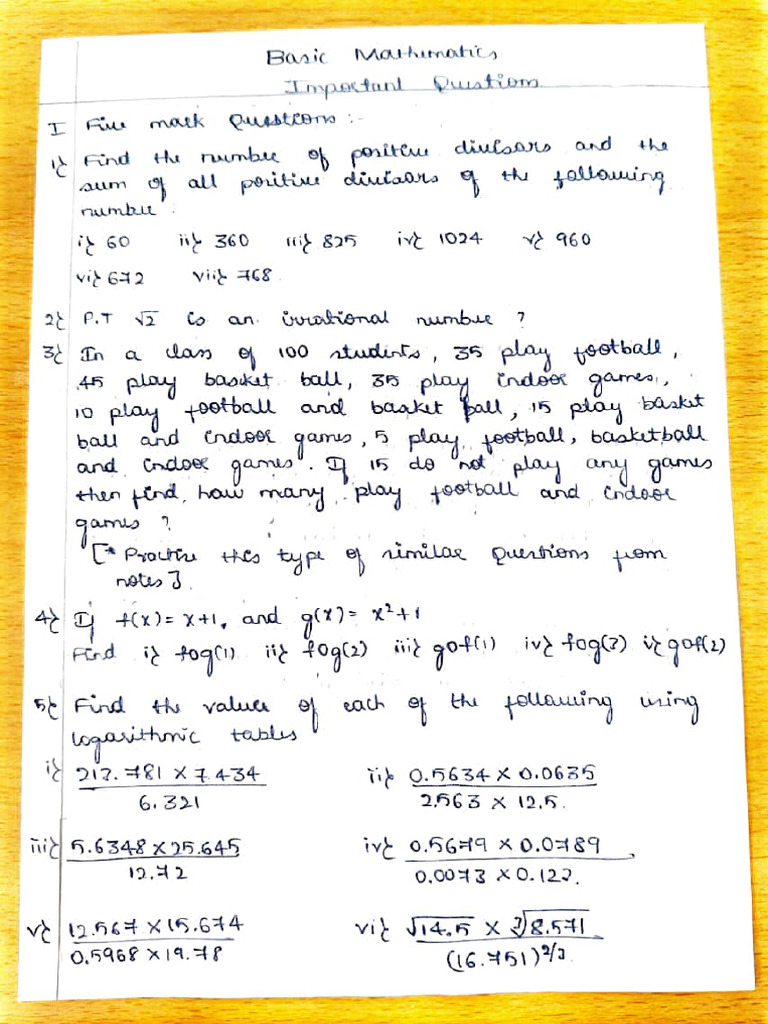 Basic Mathematics
Important Questions
I Five mark Questions :-
1} Find the number of positive divisors and the
sum of all positive divisors of the following
number :
i} 60 ii} 360 iii} 825 iv} 1024 v} 960
vi} 672 vii} 768
2} P.T √2 is an irrational number ?
3} In a class of 100 students, 35 play football,
45 play basket ball, 35 play indoor games,
10 play football and basket ball, 15 play basket
ball and indoor games, 5 play football, basketball
and indoor games. If 15 do not play any games
then find, how many play football and indoor
games ?
[* Practise this type of similar Questions from
notes].
4} If f(x) = x+1, and g(x) = x²+1
Find i} fog(1) ii} fog(2) iii} gof(1) iv} fog(3) v} gof(2)
5} Find the values of each of the following using
logarithmic tables
i} 213.781 × 7.434 / 6.321 ii} 0.5634 × 0.0635 / 2.563 × 12.5.
iii} 5.6348 × 25.645 / 12.72 iv} 0.5679 × 0.0789 / 0.0073 × 0.122.
v} 12.567 × 15.674 / 0.5968 × 19.78 vi} √14.5 × ∛8.571 / (16.751)^2/3